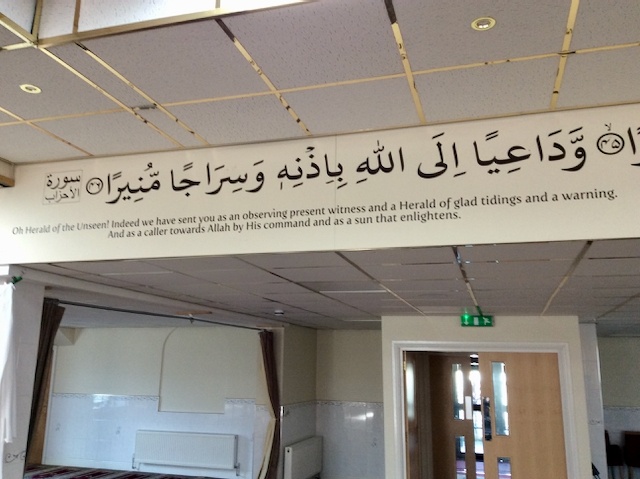 وَّدَاعِيًا اِلَى اللهِ بِاِذْنِهٖ وَسِرَاجًا مُّنِيْرًا ﴿٤٦﴾ سورة الأحزاب
Oh Herald of the Unseen! Indeed we have sent you as an observing present witness and a Herald of glad tidings and a warning.
And as a caller towards Allah by His command and as a sun that enlightens.